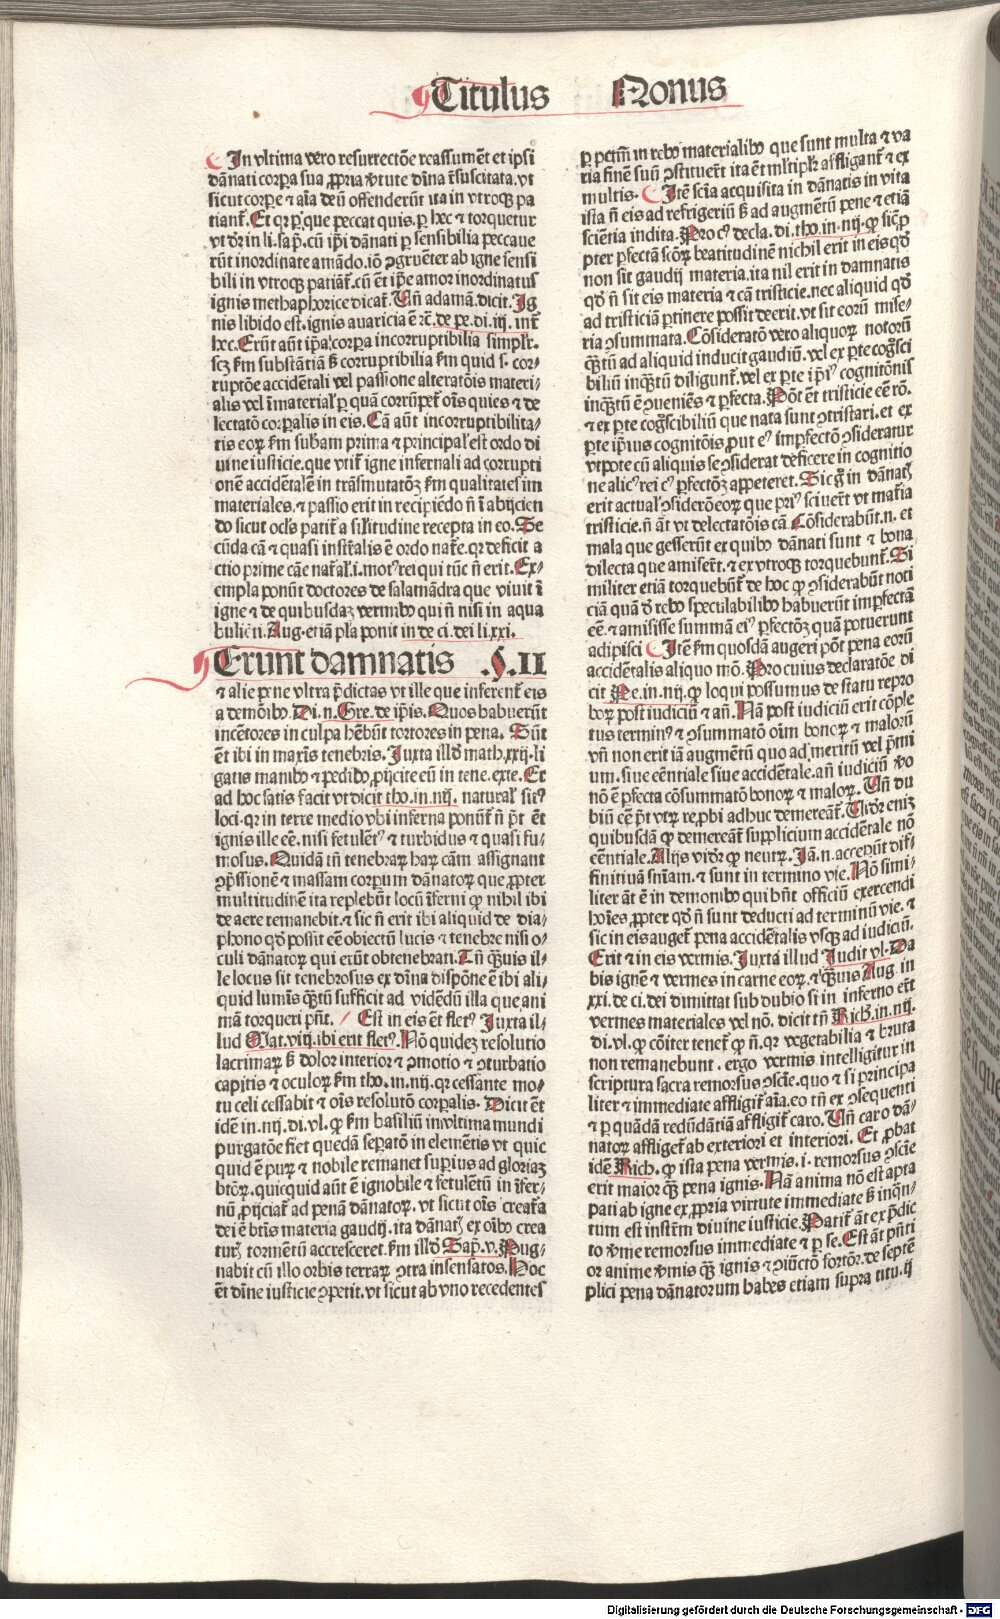 Titulus Nonus
In vltima vero resurrectõe reassumẽt et ipsi
dãnati corpa sua ꝓpria vtute diuina resuscitata. vt
sicut corpe et aĩa deũ offenderũt ita in vtroqꝫ pa
tiant̃. Et qꝛ per que peccat quis. ꝑ hec et torquetur
vt dr̃ in li. sap̃. cũ ip̃i dãnati ꝑ sensibilia peccaue
rũt inordinate amãdo. iõ ꝯgruẽter ab igne sensi
bili in vtroqꝫ patiãt̃. cũ et ip̃e amor inordinatus
ignis methaphorice dicat̃. Vñ adamã. dicit. Ig
nis libido est. ignis auaricia ẽ ꝛc̃. de pe. di. iij. int̃
hec. Erũt aũt ip̃a corpa incorruptibilia simplr̃.
scꝫ fm substãtiã sꝫ corruptibilia fm quid s. cor/
ruptõe accidẽtali vel passione alteratõis materi/
alis vel ĩmaterial̃ ꝑ quã corrũpet̃ oĩs quies et de
lectatõ corpalis in eis. Cã aũt incorruptibilita/
tis eoꝝ fm subam prima et principal̃ est ordo di
uine iusticie. que vtit̃ igne infernali ad corrupti
onẽ accidẽtalẽ in trãsmutatõꝫ fm qualitates im
materiales. et passio erit in recipiẽdo ñ ĩ abijcien
do sicut ocl̃s patit̃ a sil̃itudine recepta in eo. Se
cũda cã et quasi instr̃alis ẽ ordo nat̃e. qꝛ deficit a
ctio prime cãe nat̃al̃. i. motꝰ rei qui tũc ñ erit. Ex/
empla ponũt doctores de salamãdra que viuit ĩ
igne et de quibusdaꝫ vermibꝰ qui ñ nisi in aqua
bulienti. Aug. etiã pl̃a ponit in de ci. dei li. xxi.
Erunt damnatis .§. II
et alie pene vltra p̃dictas vt ille que inferent̃ eis
a demõibꝰ. Di. n. Gre. de ip̃is. Quos habuerũt
incẽtores in culpa hẽbũt tortores in pena. Sũt
ẽt ibi in maxĩs tenebris. Juxta illd̃ math. xxij. li
gatis manibꝰ et pedibꝰ ꝓijcite eũ in tene. exte. Et
ad hoc satis facit vt dicit tho. in. iiij. natural̃ sitꝰ
loci. qꝛ in terre medio vbi inferna ponũt̃ ñ p̃t ẽt
ignis ille eẽ. nisi fetulẽtꝰ et turbidus et quasi fu/
mosus. Quidã tñ tenebraꝝ haꝝ cãm assignant
ꝯp̃ssionẽ et massam corpum dãnatoꝝ que ꝓpter
multitudinẽ ita replebũt locũ ĩferni ꝙ nihil ibi
de aere remanebit. et sic ñ erit ibi aliquid de dia/
phono qd̃ possit eẽ obiectũ lucis et tenebre nisi o/
culi dãnatoꝝ qui erũt obtenebrati. Tñ q̃uis il/
le locus sit tenebrosus ex diuina dispõne ẽ ibi ali/
quid lumĩs q̃ꝫtũ sufficit ad vidẽdũ illa que ani
mã torqueri pñt. Est in eis ẽt fletꝰ Juxta il/
lud Mat. viij. ibi erit fletꝰ. Nõ quidez resolutio
lacrimaꝝ sꝫ dolor interior et ꝯmotio et ꝯturbatio
capitis et oculoꝝ fm tho. in. iiij. qꝛ cessante mo/
tu celi cessabit et oĩs resolutõ corpalis. Dicit ẽt
idẽ in. iiij. di. vl. ꝙ fm basiliũ in vltima mundi
purgatõe fiet quedã separatõ in elemẽtis vt quic
quid ẽ puꝝ et nobile remanet supius ad gloriaꝫ
btõꝝ. quicquid aũt ẽ ignobile et fetulẽtũ in ĩfer/
nũ ꝓijciat̃ ad penã dãnatoꝝ. vt sicut oĩs creat̃a
dei ẽ btĩs materia gaudij. ita dãnatꝫ ex oĩbꝰ crea
turꝫ tormẽtũ accresceret. fm illd̃ Sap̃. v. Pug/
nabit cũ illo orbis terraꝝ ꝯtra insensatos. Hoc
ẽt diuine iusticie ꝯpetit. vt sicut ab vno recedentes
ꝑ pctm̃ in rebꝰ materialibꝰ que sunt multa et va
ria finẽ suũ ꝯstituert̃ ita ẽt ml̃tiplr̃ affligant̃ et ex
multis. Itẽ scĩa acquisita in dãnatis in vita
ista ñ eis ad refrigeriũ sꝫ ad augmẽtũ pene et etiã
sciẽtia indita. Pro cꝰ decla. di. tho. in. iiij. ꝙ sic ꝓ
pter pfectã scõꝝ beatitudinẽ nichil erit in eis qd̃
non sit gaudij materia. ita nil erit in damnatis
qd̃ ñ sit eis materia et cã tristicie. nec aliquid qd̃
ad tristiciã ptinere possit deerit. vt sit eorũ mise/
ria ꝯsummata. Cõsideratõ vero aliquoꝝ notorũ
q̃ꝫtũ ad aliquid inducit gaudiũ. vel ex pte cogsci
biliũ inq̃ꝫtũ diligunt̃. vel ex pte ip̃iꝰ cognitõnis
inq̃ꝫtũ ẽ ꝯueniẽs et pfecta. Põt ẽt tristicie eẽ rõ.
et ex pte cogscibiliũ que nata sunt ꝯtristari. et ex
pte ip̃ius cognitõis ꝓut eꝰ impfectõ ꝯsideratur
vtpote cũ aliquis se ꝯsiderat deficere in cognitio
ne alicꝰ rei cꝰ pfectõꝫ appeteret. Sic g̃ in dãnatꝫ
erit actual̃ ꝯsiderõ eoꝝ que priꝰ sciuert̃ vt mat̃ia
tristicie. ñ ãt vt delectatõis cã. Cõsiderabũt. n. et
mala que gesserũt ex quibꝰ dãnati sunt et bona
dilecta que amisert̃. et ex vtroqꝫ torquebunt̃. Si
militer etiã torquebũt̃ de hoc ꝙ ꝯsiderabũt noti
ciã quã d̃ rebꝰ speculabilibꝰ habuerũt impfectã
eẽ. et amisisse summã eiꝰ pfectõꝫ quã potuerunt
adipisci Itẽ fm quosdã augeri põt pena eorũ
accidẽtalis aliquo mõ. Pro cuius declaratõe di
cit Pe. in. iiij. ꝙ loqui possumus de statu repro
boꝝ post iudiciũ et añ. Nã post iudiciũ erit cõple
tus terminꝰ et ꝯsummatõ oĩm bonoꝝ et maloꝝ
vñ non erit iã augmẽtũ quo ad meritũ vel p̃mi
um. siue eẽntiale siue accidẽtale. añ iudiciũ vo
nõ ẽ pfecta cõsummatõ bonoꝝ et maloꝝ. Vñ du
biũ eẽ p̃t vtꝝ reprobi adhuc demereãt̃. Vidẽt̃ enĩ
quibusdã ꝙ demereãt̃ supplicium accidẽtale nõ
eẽntiale. Alijs vidr̃ ꝙ neutꝝ. Jã. n. acceperũt dif/
finitiuã snĩam. et sunt in termino vie. Nõ simi/
liter ãt ẽ in demonibꝰ qui hñt officiũ exercendi
hoĩes. ꝓpter qd̃ ñ sunt deducti ad terminũ vie. et
sic in eis auget̃ pena accidẽtalis vsqꝫ ad iudiciũ.
Erit et in eis vermis. Juxta illud Judit vl. Da
bis ignẽ et vermes in carne eoꝝ. et q̃ꝫuis Aug. in
xxi. de ci. dei dimittat sub dubio si in inferno ert̃
vermes materiales vel nõ. dicit tñ Rich. in. iiij.
di. vl. ꝙ cõiter tenet̃ ꝙ ñ. qꝛ vegetabilia et bruta
non remanebunt. ergo vermis intelligitur in
scriptura sacra remorsus ꝯscĩe. quo et si principa
liter et immediate affligit̃ aĩa. eo tñ ex ꝯsequenti
et ꝑ quãdã redũdãtiã affligit̃ caro. Vñ caro dã/
natoꝝ affliget̃ ab exteriori et interiori. Et ꝓbat
idẽ Rich. ꝙ ista pena vermis. i. remorsus ꝯscĩe
erit maior q̃ꝫ pena ignis. Nã anima nõ est apta
pati ab igne ex ꝓpria virtute immediate sꝫ inq̃n/
tum est instr̃m diuine iusticie. Patit̃ ãt ex p̃dic
to verme remorsus immediate et ꝑ se. Est ãt pñti
or anime vermis q̃ꝫ ignis et ꝯiũctõ fortioꝝ. de septẽ
plici pena dãnatorum habes etiam supra titu. ij
Digitalisierung gefördert durch die Deutsche Forschungsgemeinschaft - DFG